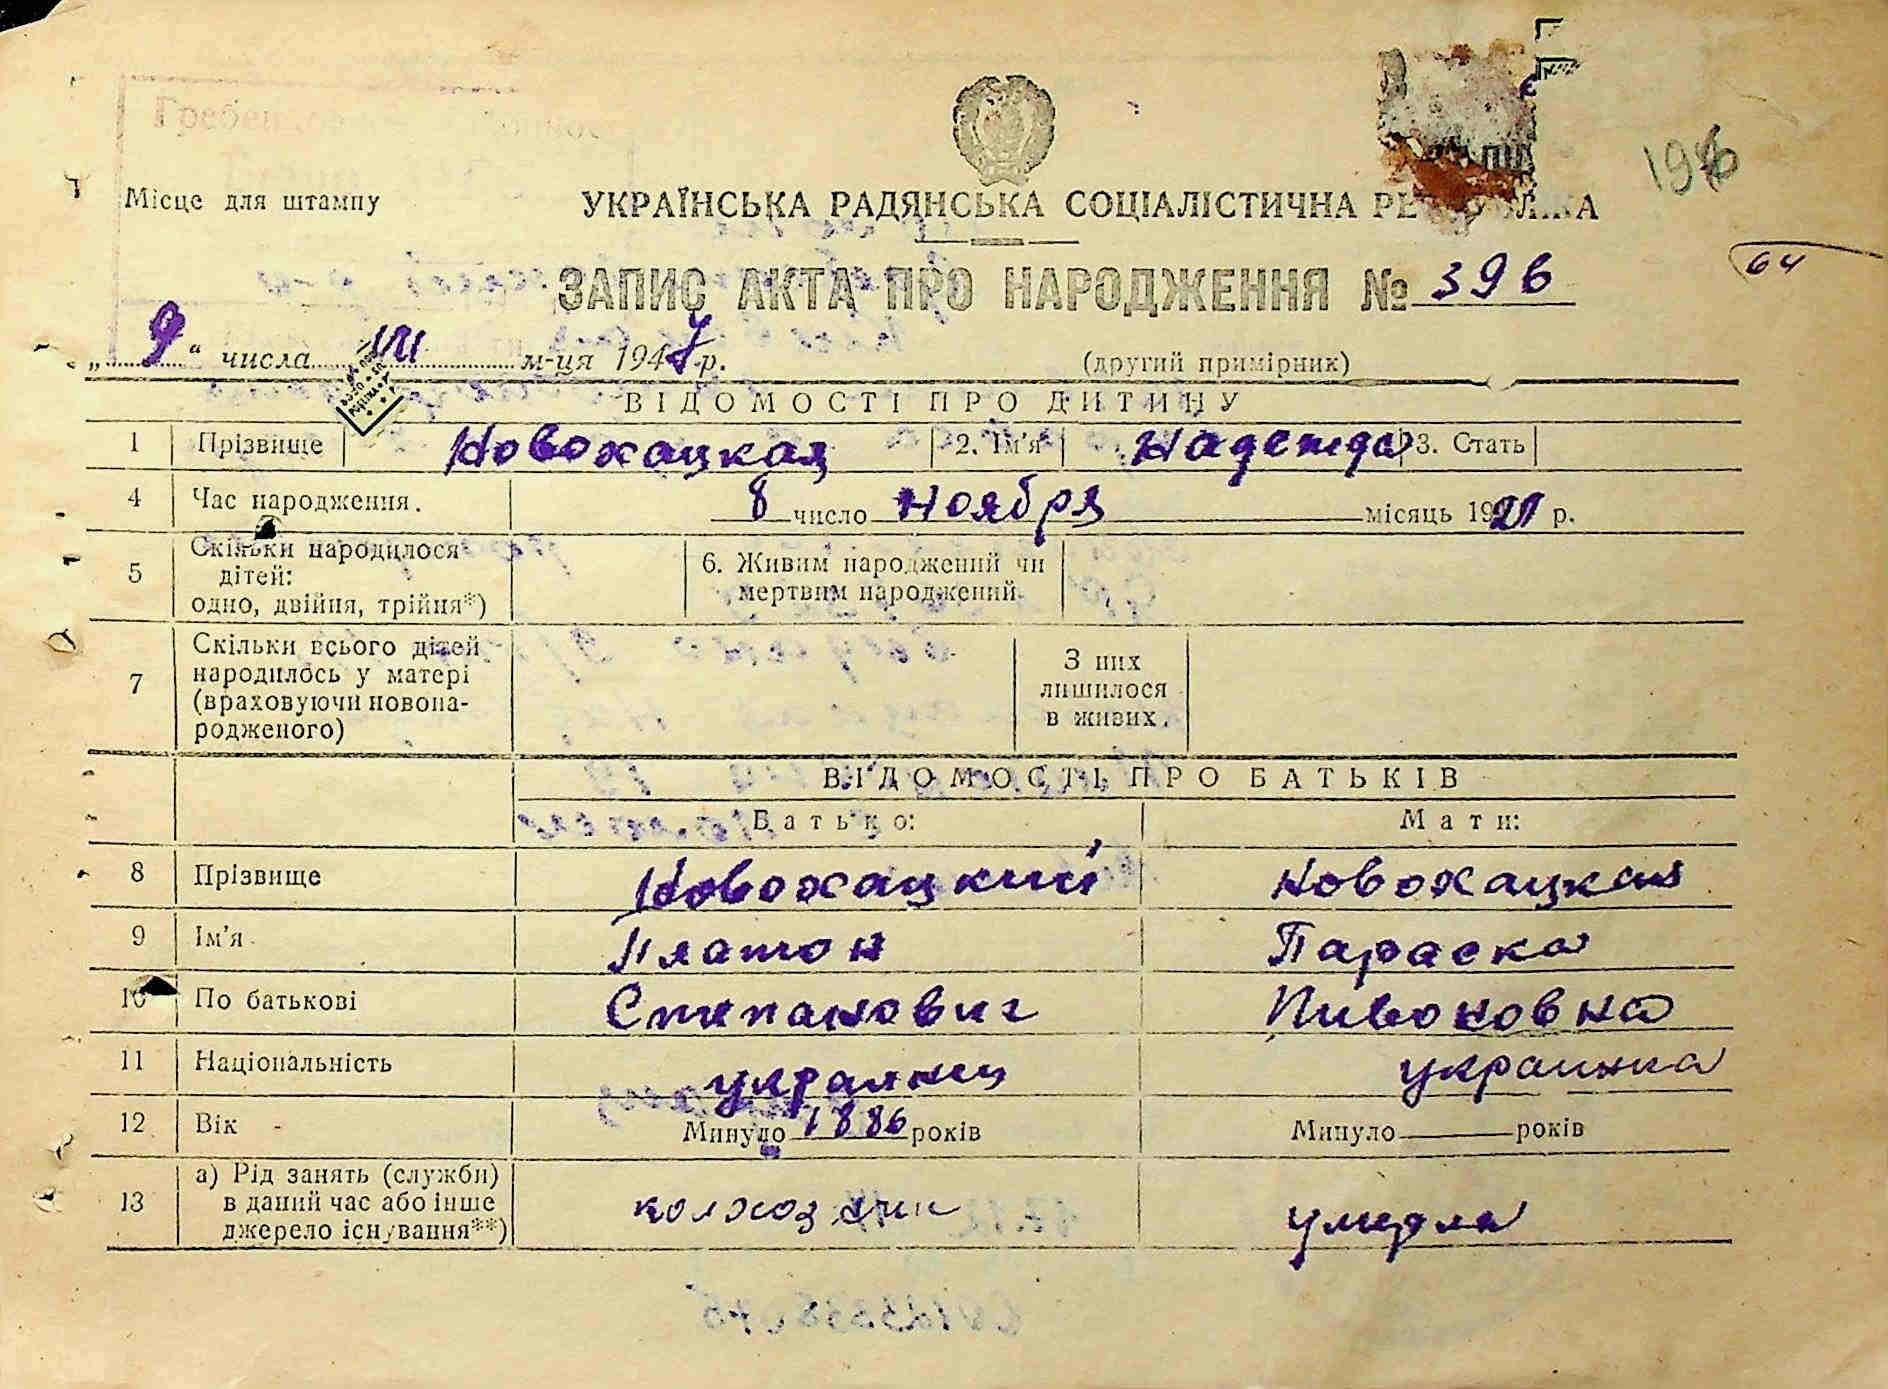 Місце для штампу
УКРАЇНСЬКА РАДЯНСЬКА СОЦІАЛІСТИЧНА
196
ЗАПИС АКТА ПРО НАРОДЖЕННЯ № 396
64
„9“ числа VIII м-ця 1947 р.
(другий примірник)
ВІДОМОСТІ ПРО ДИТИНУ
1 Прізвище Новохацкая 2. Ім'я Надежда 3. Стать
4 Час народження. 8 число Ноября місяць 1921 р.
5 Скільки народилося дітей: одно, двійня, трійня*) 6. Живим народжений чи мертвим народжений
7 Скільки всього дітей народилось у матері (враховуючи новонародженого) З них лишилося в живих.
ВІДОМОСТІ ПРО БАТЬКІВ
Батько: Мати:
8 Прізвище Новохацкий Новохацкая
9 Ім'я Платон Параска
10 По батькові Степанович
11 Національність украинец украинка
12 Вік Минуло 1886 років Минуло років
13 а) Рід занять (служби) в даний час або інше джерело існування**) колхозник умерла